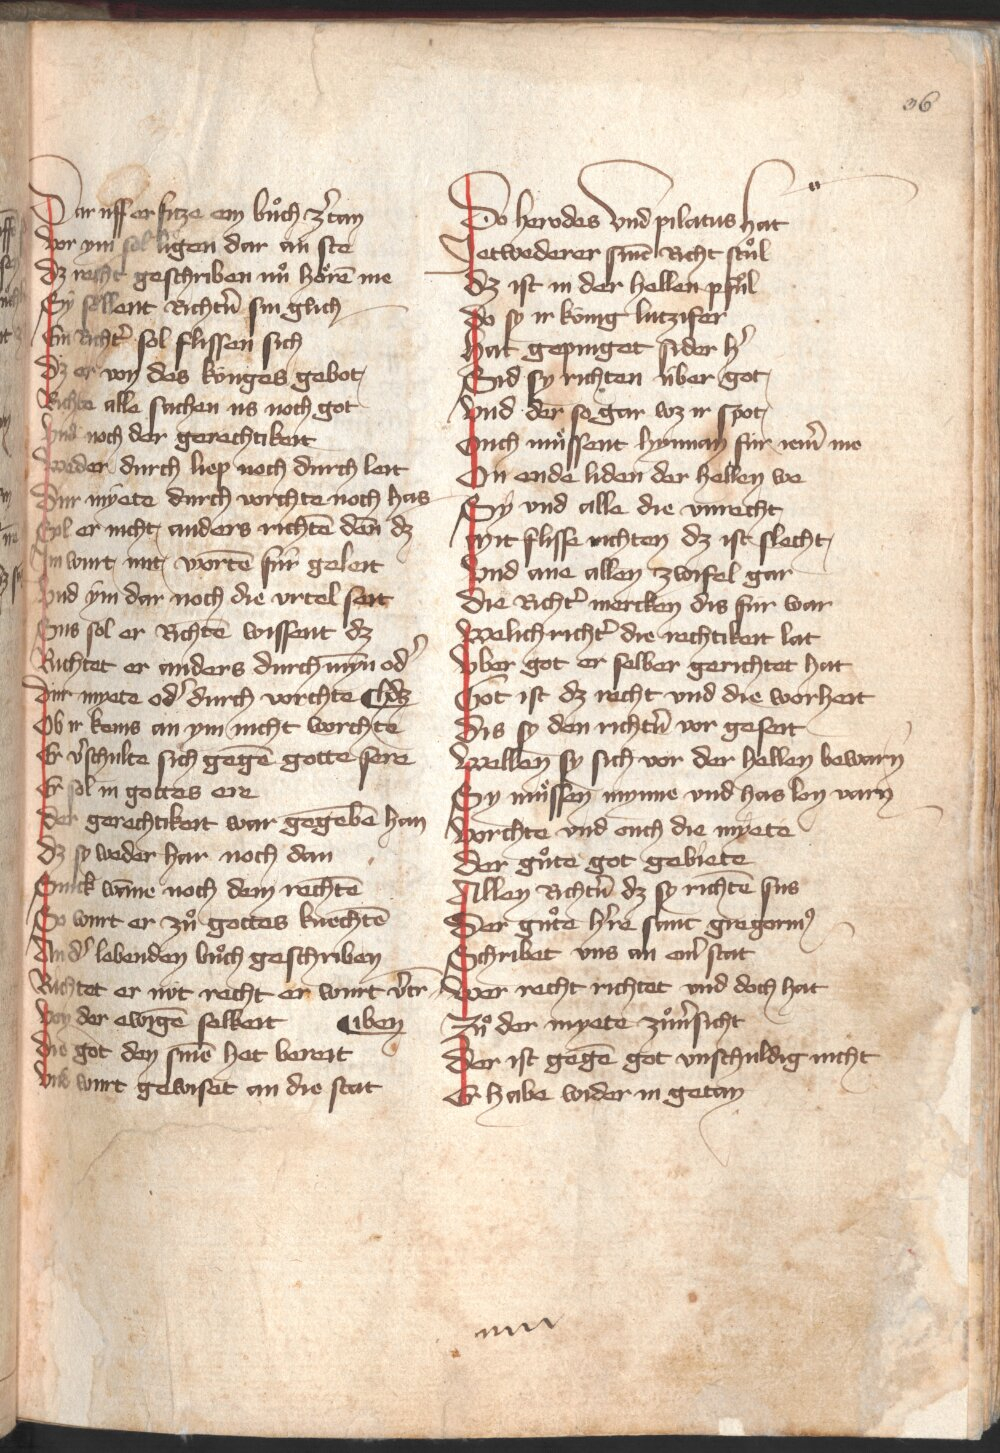 36
Dar uff er sitze ein bůch zˀtan
Vor ym sol ligen dar an ste
dz recht geschriben nů hörē me
Sy sollent Richtˀn sin glich
Ein Richtˀ sol flissen sich
Dz er von des künges gebot
Richte alle sachen us noch got
Und noch der gerechtikeit
Weder durch liep noch durch leit
Dur myete durch vorchte noch has
Sol er nicht anders richtē den̄ dz
Im wirt mit wortē für geleit
Und ym dar noch die urtel seit
Sus sol er Richtē wissent dz
Richtet er anders durch myn odˀ
Dur myete odˀ durch vorchte dz
Ob ir keins an ym nicht worchte
Er vˀschulte sich gegē gotte sere
Er sol in gottes ere
der gerechtikeit war gegebē han
dz sy weder har noch dan
Gwick wēne noch dem rechtē
So wirt er zů gottes knechtē
An dˀ lebenden bůch geschriben
Richtet er nüt recht er wirt vˀtr
Von der ewigē selkeit iben
Die got den sinē het bereit
Und wirt gewiset an die stat
Do herodes und pilatus hat
Jetwederer sinē Richt stůl
dz ist in der hellen pfůl
Do sy ir künig lutzifer
Hat gepinget sider hˀ
Sid sy richten über got
Und der so gar wz ir spot
Ouch müssent hynnan für iemˀ me
On ende liden der hellen we
Sy und alle die unrecht
Mit flisse richten dz ist slecht
Und ane allen zwifel gar
Die Richtˀ mercken dis für war
Welich richtˀ die rechtikeit lat
Uber got er selber gerichtet hat
Got ist dz recht und die worheit
Dis sy den richtˀn vor geseit
Wellen sy sich vor der hellen bewarn
Sy müssen mynne und has lon varn
Vorchte und ouch die myete
Der gůte got gebiete
Allen Richtˀn dz sy richtē sus
Der gůte hˀre sant gregoriuˀ
Schribet uns an einˀ stat
Wer recht richtet und doch hat
Zů der myete zůvˀsicht
Der ist gegē got unschuldig nicht
Er habe wider in getan